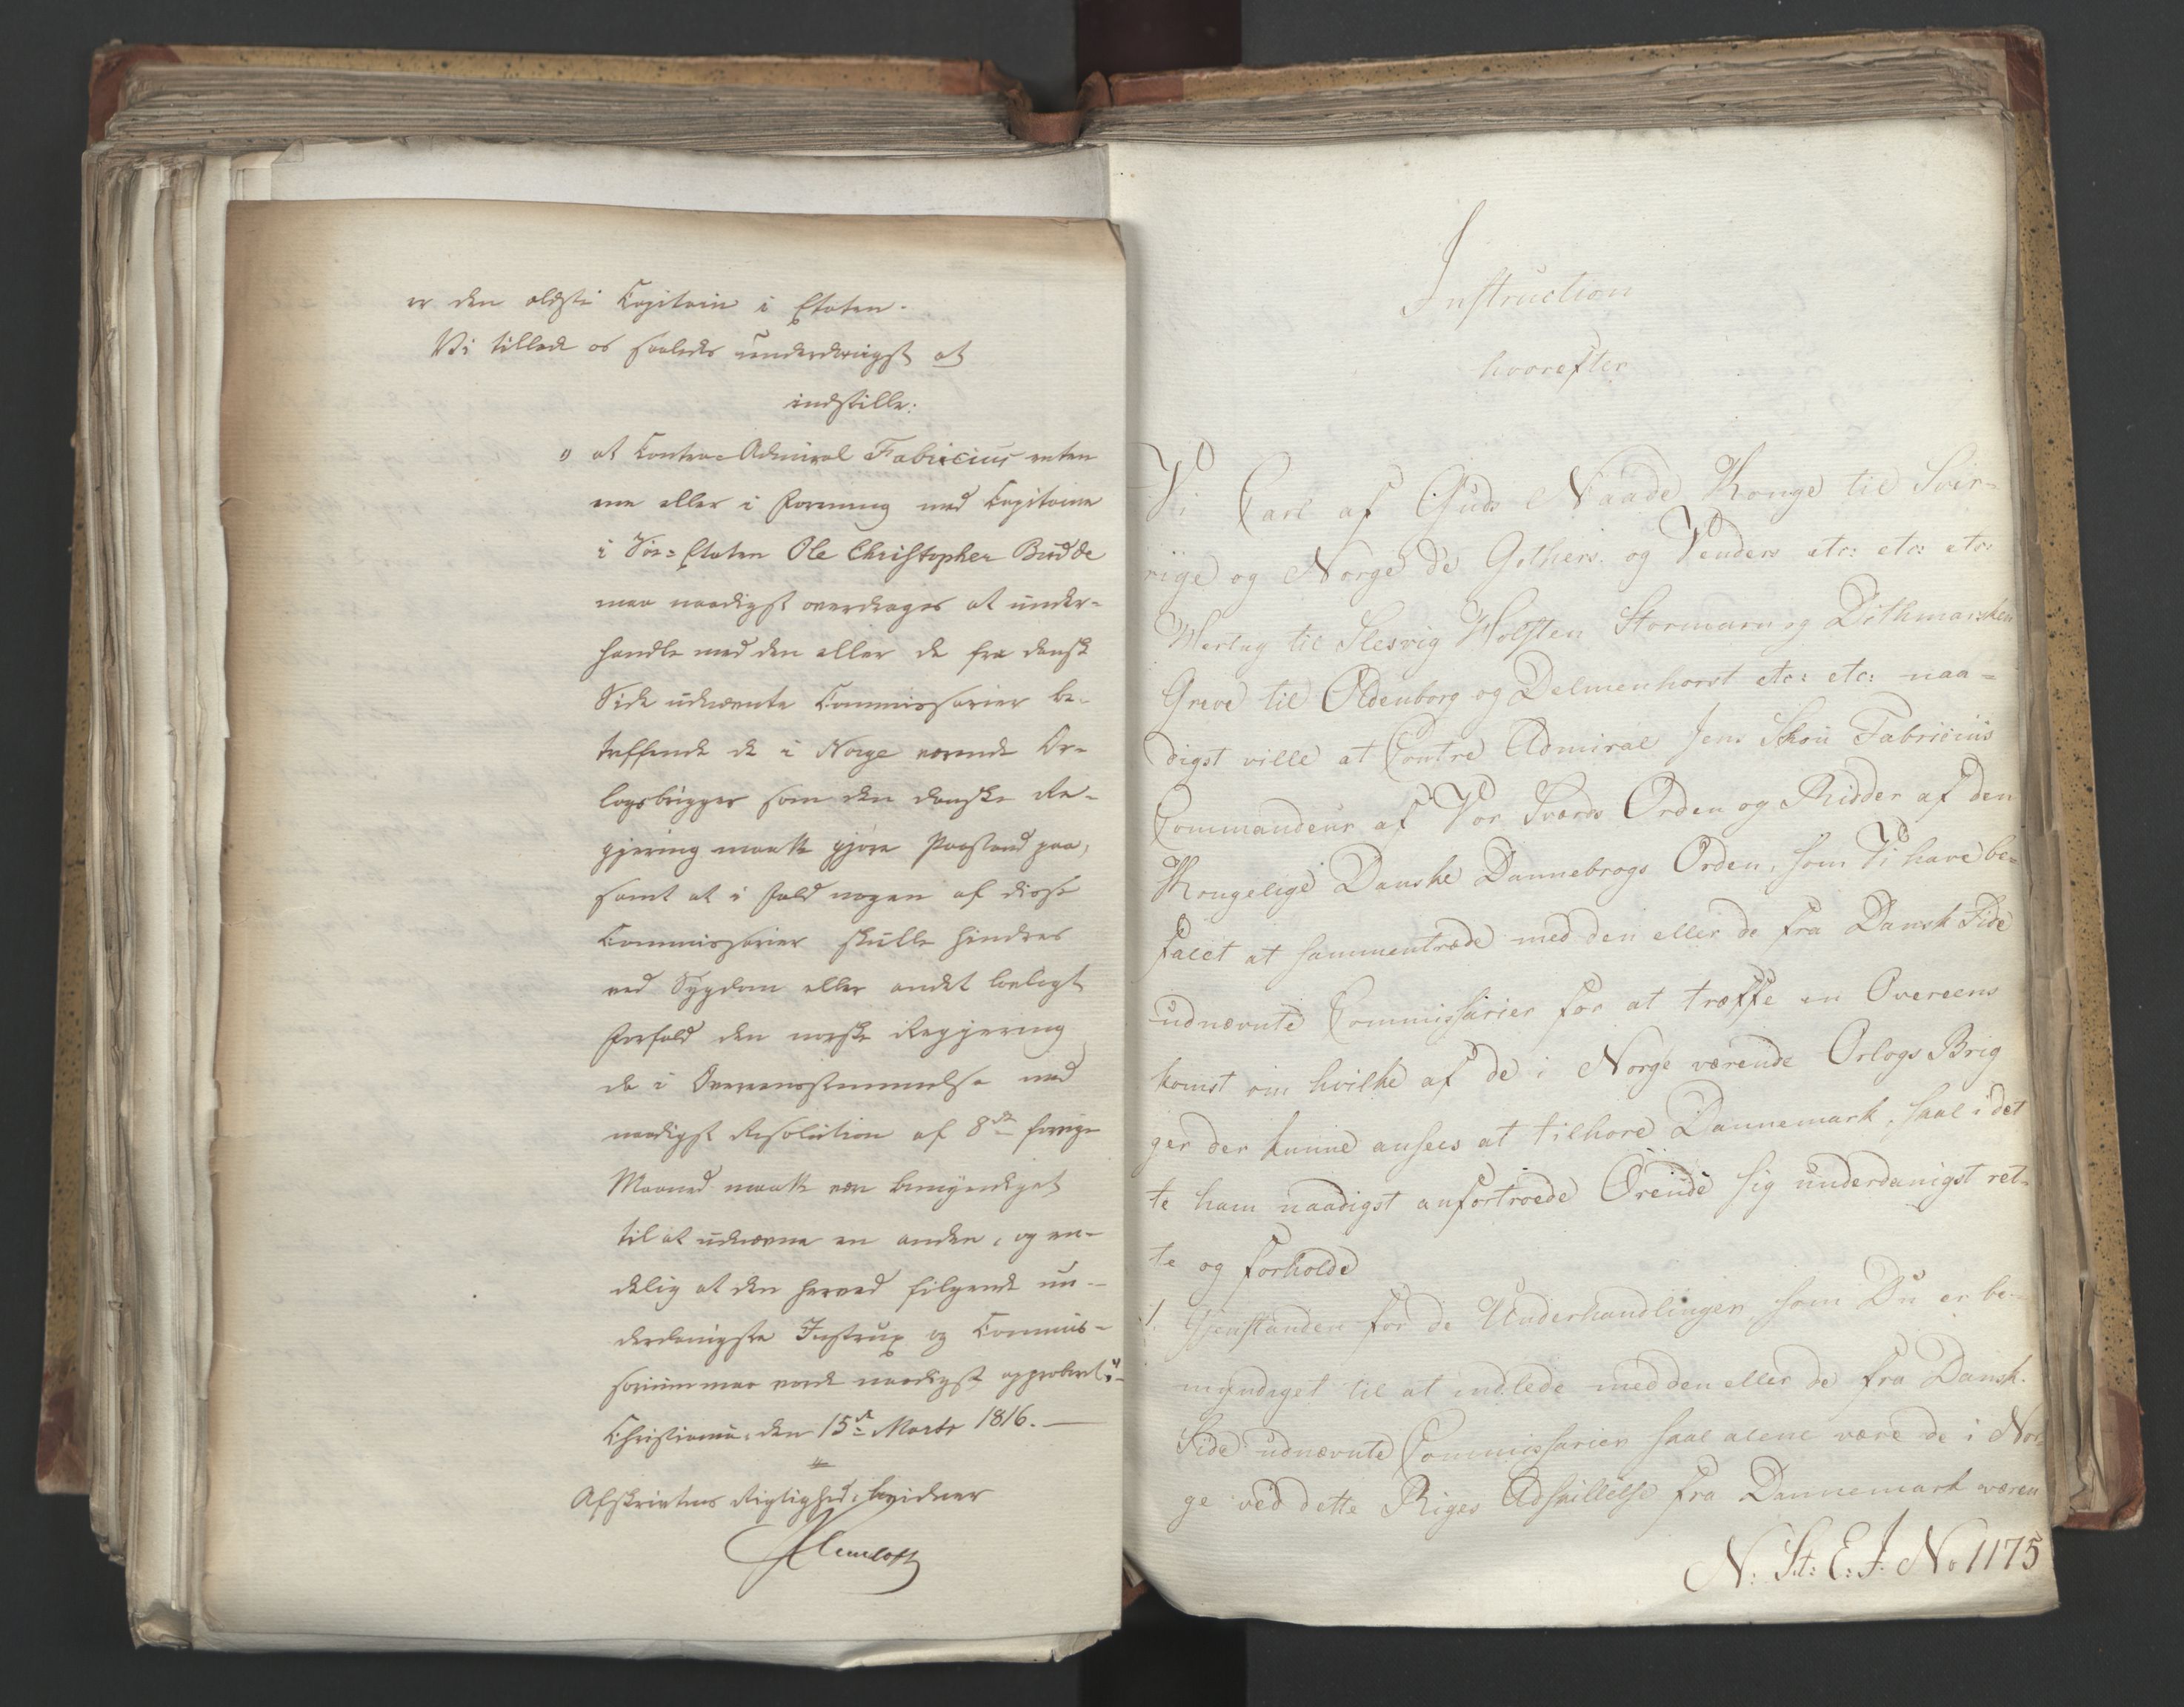 er den ældste Capitain i Etaten.
Vi tillade os saaledes underdanigst at
indstille:
"at Contra-Admiral Fabricius enten
ene eller i Forening med Capitaine
i Søe-Etaten Ole Christopher Budde
maa naadigst overdrages at under-
handle med den eller de fra dansk
Side udnævnte Commissarier be-
træffende de i Norge værende Or-
logsbrigger som den danske Re-
gjering maatte gjøre Paastand paa,
samt at i Fald nogen af disse
Commissarier skulle hindres
ved Sygdom eller andet lovligt
Forfald den norske Regjering
da i Overeensstemmelse med
naadigst Resolution af 8de forrige
Maaned maatte være bemyndiget
til at udnævne en anden, og en-
delig at den herved følgende un-
derdanigste Instrux og Commis-
sorium maa vorde naadigst approberet."
Christiania, den 15de Marts 1816.
Afskriftens Rigtighed, bevidner
Instruction
hvorefter
Vi Carl af Guds Naade Konge til Sver-
rige og Norge de Gothers og Venders etc: etc: etc:
Hertug til Slesvig Holsten Stormarn og Dithmarsken
Greve til Oldenborg og Delmenhorst etc: etc: naa-
digst ville at Contre Admiral Jens Skou Fabricius
Commandeur af Vor Sværd Orden og Ridder af den
Kongelige Danske Dannebrogs Orden, som Vi have be-
falet at sammentræde med den eller de fra Dansk Side
udnævnte Commissarier for at træffe en Overeens
komst om hvilke af de i Norge værende Orlogs Brig
ger der kunne ansees at tilhøre Dannemark, skal i det
te ham naadigst anfortroede Ærende sig underdanigst ret-
te og forholde
1. Gjenstanden for de Underhandlinger som Du er be-
myndiget til at indlede med den eller de fra Dansk
Side udnævnte Commissarier skal alene være de i Nor
ge ved dette Riges Adskillelse fra Dannemark væren
N: St: E: J. No 1175